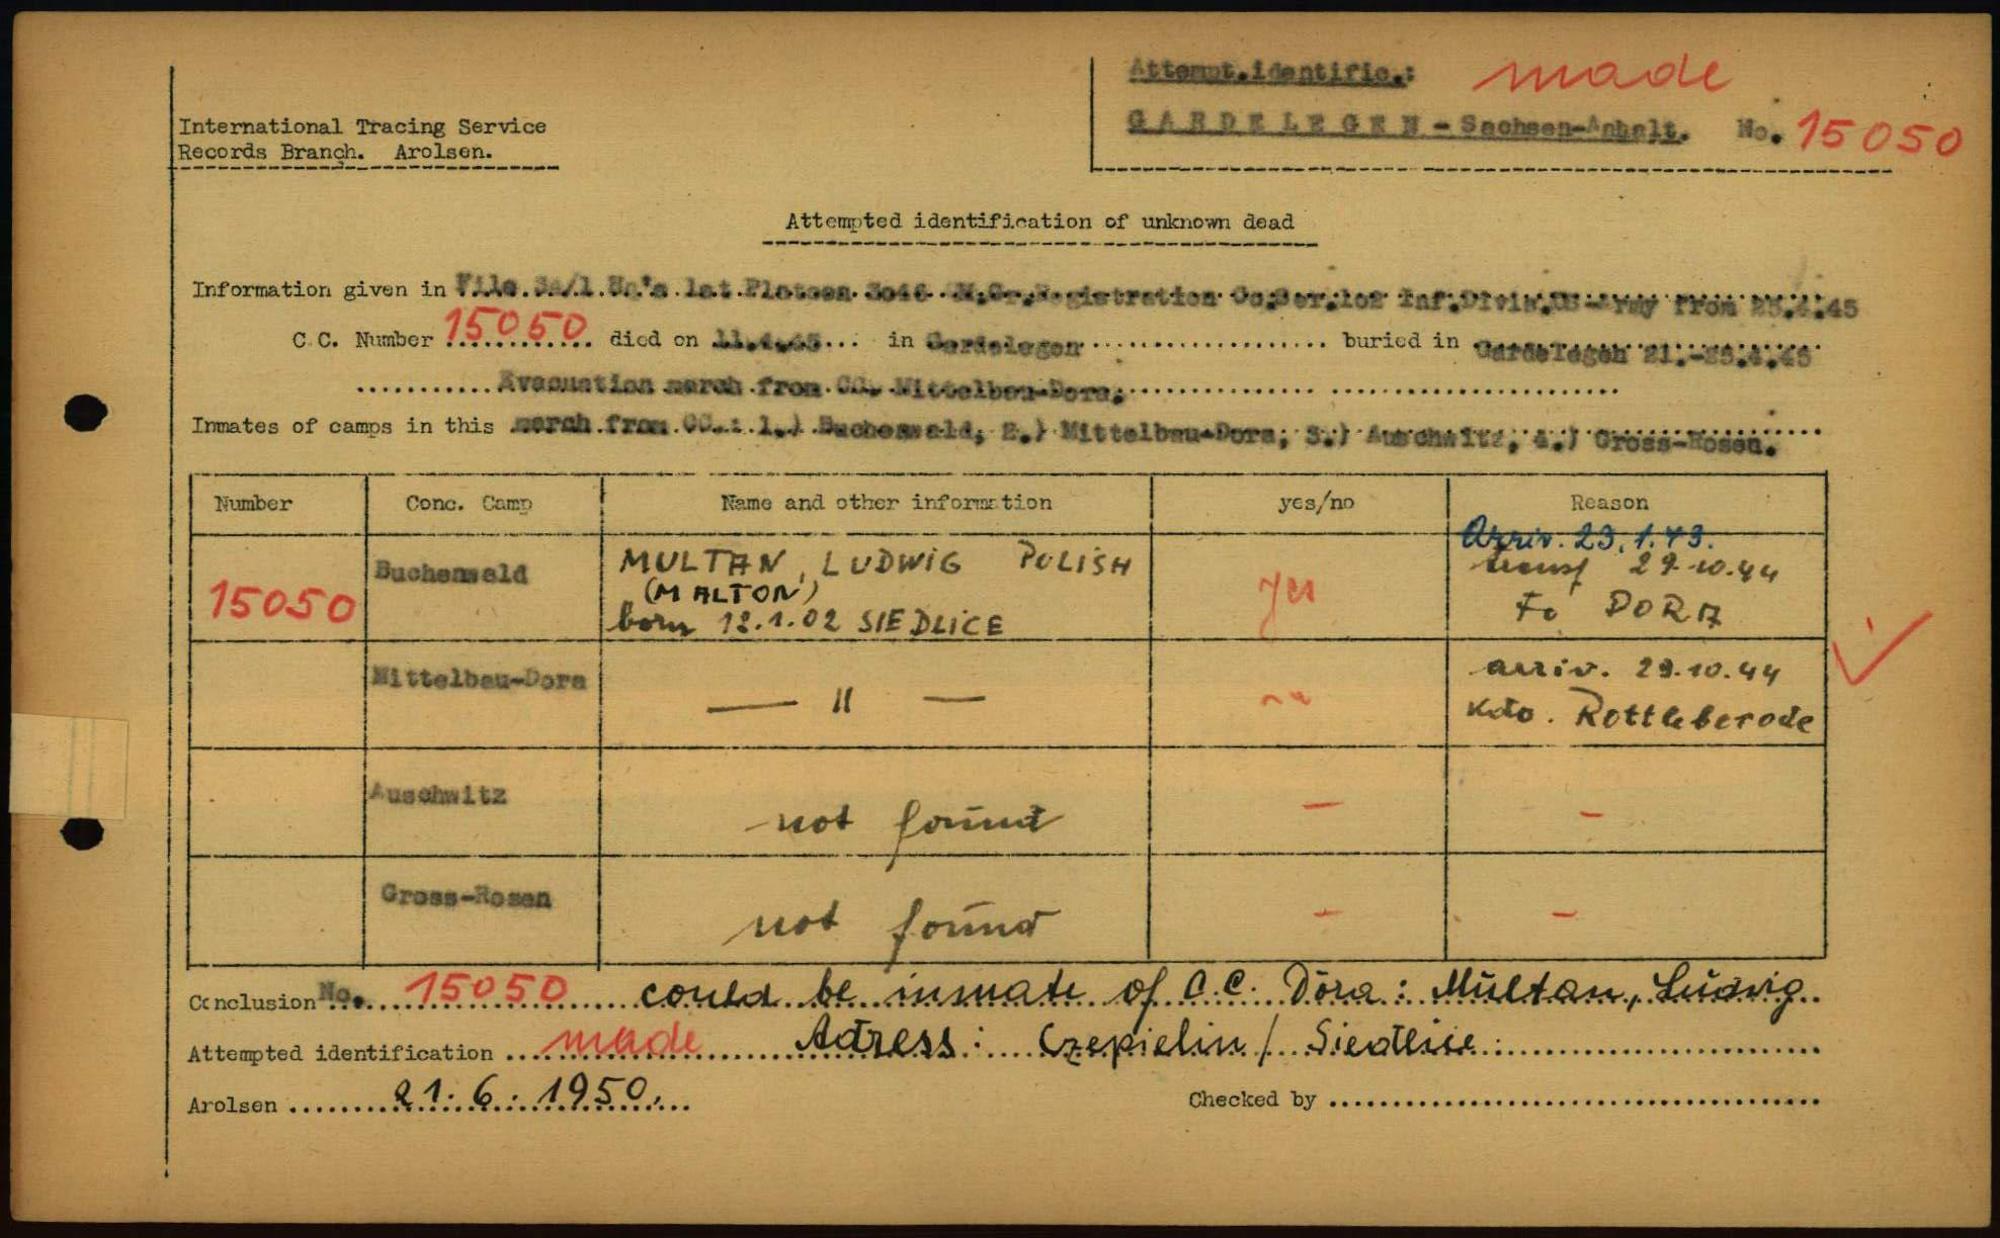 Attempt.identific.: made
GARDELEGEN - Sachsen-Anhalt. No. 15050
International Tracing Service
Records Branch. Arolsen.
Attempted identification of unknown dead
Information given in File 3a/1 1st Platoon 3046 Registration Inf.Divis.US-Army from 25.4.45
C.C. Number 15050 died on 11.4.45 in Gardelegen buried in Gardelegen 21.-25.4.45
Evacuation march from CC. Mittelbau-Dora.
Inmates of camps in this march from CC.: 1.) Buchenwald, 2.) Mittelbau-Dora, 3.) Auschwitz, 4.) Gross-Rosen.
Number Conc. Camp Name and other information yes/no Reason
Arriv. 23.1.43.
15050 Buchenwald MULTAN, LUDWIG POLISH yes transf 29.10.44
(MALTON) To DORA
born 12.1.02 SIEDLICE
Mittelbau-Dora — " — no arriv. 29.10.44
Kdo. Rottleberode
Auschwitz not found — —
Gross-Rosen not found — —
Conclusion No. 15050 could be inmate of C.C. Dora: Multan, Ludwig
Attempted identification made Adress: Czepielin / Siedlice
Arolsen 21.6.1950. Checked by